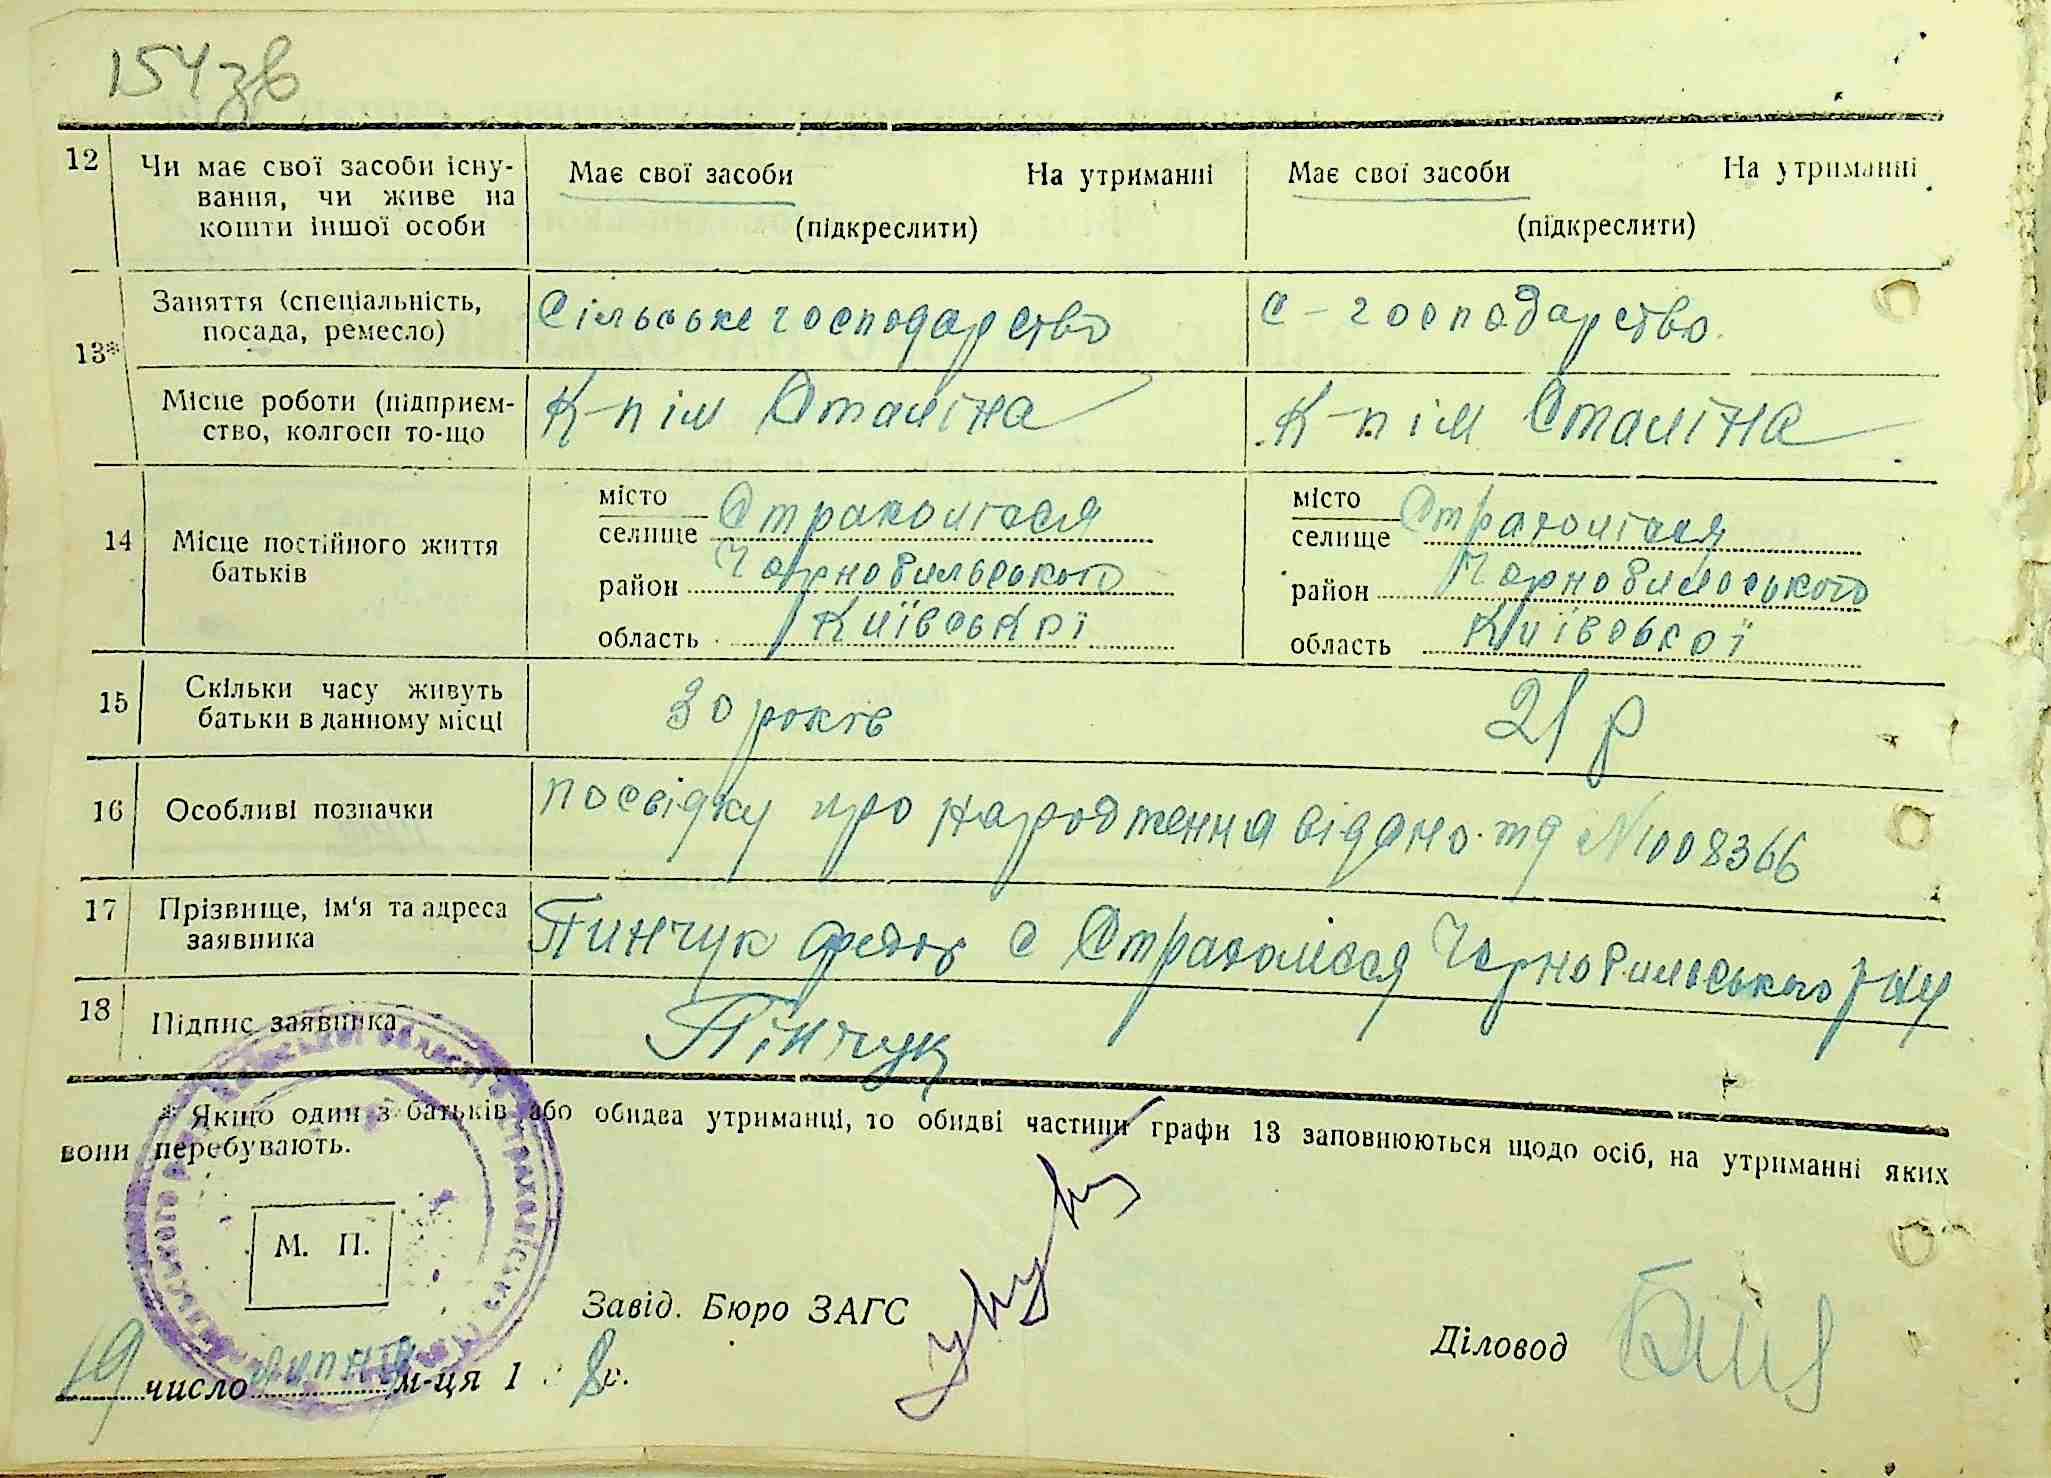 154зв
12 Чи має свої засоби існу-
вання, чи живе на
кошти іншої особи
Має свої засоби На утриманні
(підкреслити)
Має свої засоби На утриманні
(підкреслити)
13*
Заняття (спеціальність,
посада, ремесло)
Сільське господарство
с-господарство.
Місце роботи (підприєм-
ство, колгосп то-що
К-п ім Сталіна
К-п ім Сталіна
14 Місце постійного життя
батьків
місто
селище Страхолісся
район Чорнобильського
область Київської
місто
селище Страхолісся
район Чорнобильського
область Київської
15 Скільки часу живуть
батьки в данному місці
30 років
21 р
16 Особливі позначки
посвідку про народження відано тд N 1008366
17 Прізвище, ім'я та адреса
заявника
Пинчук с Страхолісся Чорнобильського р-ну
18 Підпис заявника
Пінчук
* Якщо один з батьків або обидва утриманці, то обидві частини графи 13 заповнюються щодо осіб, на утриманні яких
вони перебувають.
М. П.
Завід. Бюро ЗАГС
Діловод
19 число липня м-ця 1 8 р.